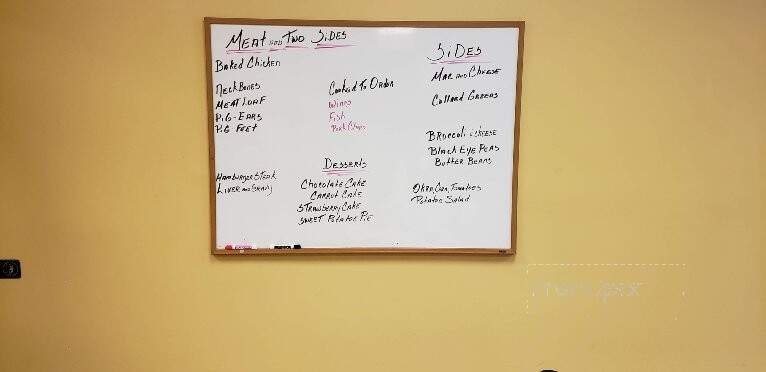 MEAT AND TWO SIDES
Baked Chicken
Neck Bones
MEAT LOAF
PIG-EARS
PIG FEET
HAMBURGER STEAK
LIVER AND GRAVY
Cooked To Order
Wings
Fish
Pork Chops
Desserts
CHOCOLATE CAKE
CARROT CAKE
STRAWBERRY CAKE
SWEET POTATOE PIE
SIDES
MAC AND CHEESE
Collard Greens
BROCCOLI & CHEESE
Black Eye PEAS
Butter Beans
OKRA, Corn, Tomatoes
Potatoe Salad